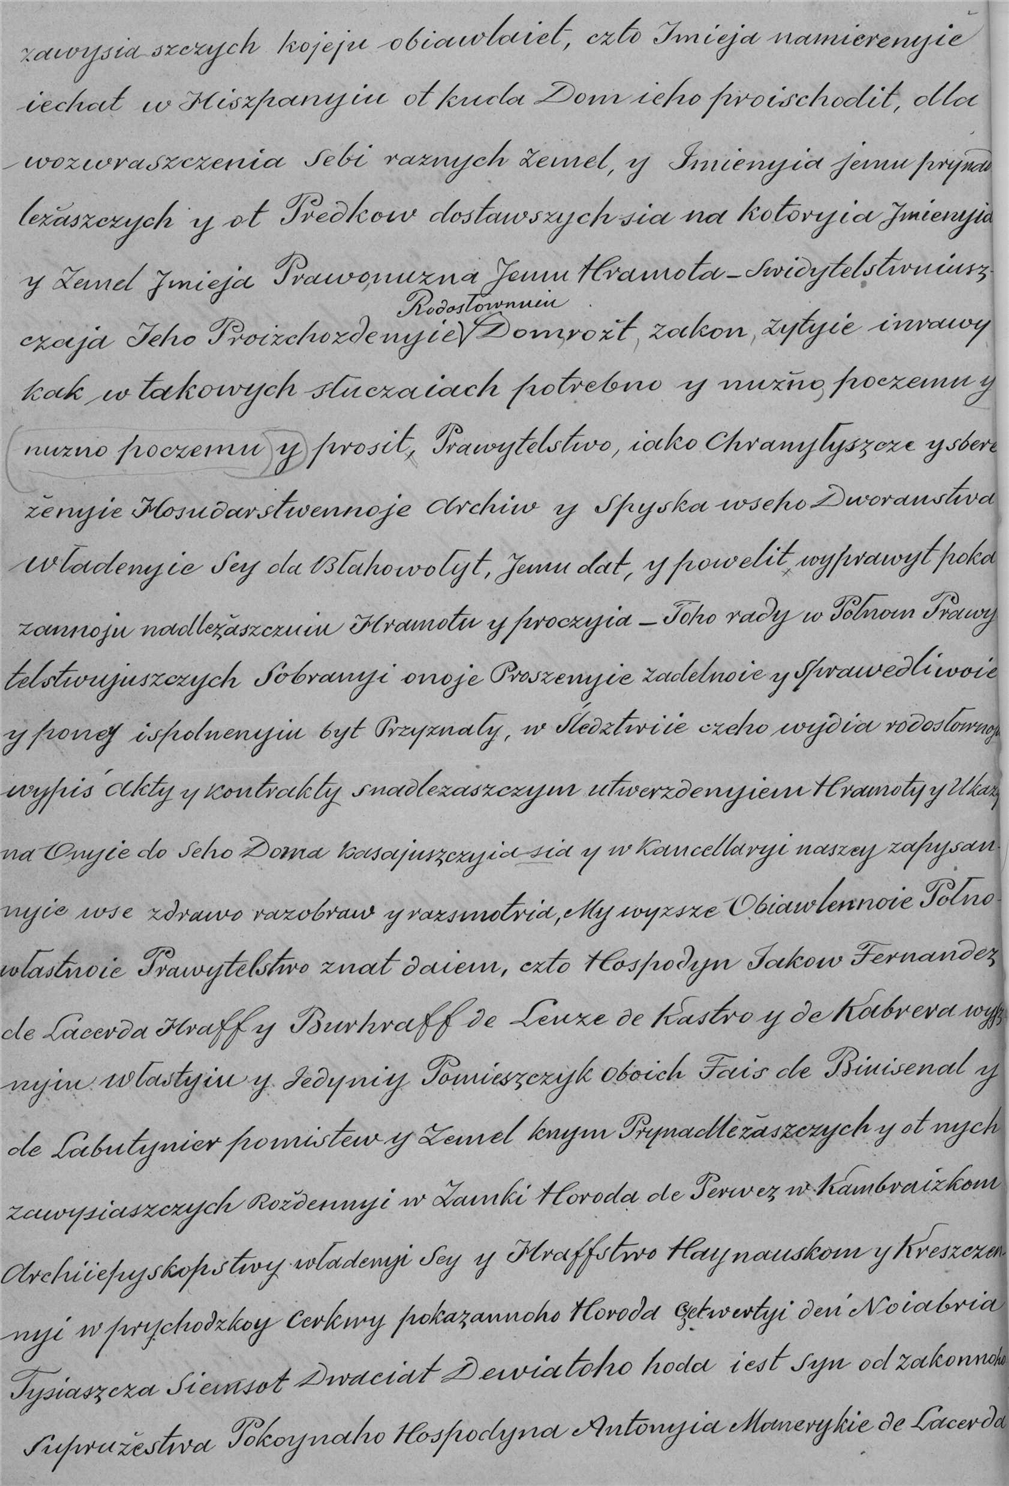 zawysia szczych kojeju obiawlaiet, czto Imieja namierenyie
iechat w Hiszpanyiu ot kuda Dom ieho proischodit, dla
wozwraszczenia Sebi raznych Zemel, y Imienyia jemu prynad
leżaszczych y ot Predkow dostawszych sia na kotoryia Jmienyia
y Zemel Jmieja Prawo, nuzna Jemu Hramota – Swidytelstwuiusz-
Rodosłownuiu
czaja Jeho Proizchozdenyie Dom, rożt, zakon, żytyie inrawy
kak w takowych słuczaiach potrebno y nużno, poczemu y
nuzno poczemu y prosit, Prawytelstwo, iako Chranyłyszcze y sbere
żenyie Hosudarstwennoje Archiw y Spyska wseho Dworanstwa
władenyie Sey da Błahowołyt, Jemu dat, y powelit wyprawyt poka
zannoju nadleżaszczuiu Hramotu y proczyia – Toho rady w Połnom Prawy
telstwujuszczych Sobranyi onoje Proszenyie zadelnoie y Sprawedliwoie
y poney ispolnenyiu byt Przyznały, w Śledztwiie czeho wydia rodosłownoju
wypiś Akty y kontrakty snadlezaszczym utwerzdenyiem Hramoty y Ukazy
na Onyie do Seho Doma kasajuszczyia sia y w Kancellaryi naszey zapysan-
nyie wse zdrawo razobraw y razsmotria, My wyzsze Obiawlennoie Połno-
włastnoie Prawytelstwo znat daiem, czto Hospodyn Jakow Fernandez
de Lacerda Hraff y Burhraff de Leuze de Kastro y de Kabrera wyż
nyiu włastyiu y Jedyniy Pomieszczyk oboich Fais de Binisenal y
de Labutynier pomistew y Zemel knym Prynadleżaszczych y ot nych
zawysiaszczych Rożdennyi w Zamki Horoda de Perwez w Kambraizkom
Archiiepyskopstwy władenyi Sey y Hraffstwo Haynauskom y Kreszczen
nyi w prychodzkoy Cerkwy pokazannoho Horoda czetwertyi deń Noiabria
Tysiaszcza Siemsot Dwaciat Dewiatoho hoda iest Syn od zakonnoho
Supruzestwa Pokoynaho Hospodyna Antonyia Manerykie de Lacerda